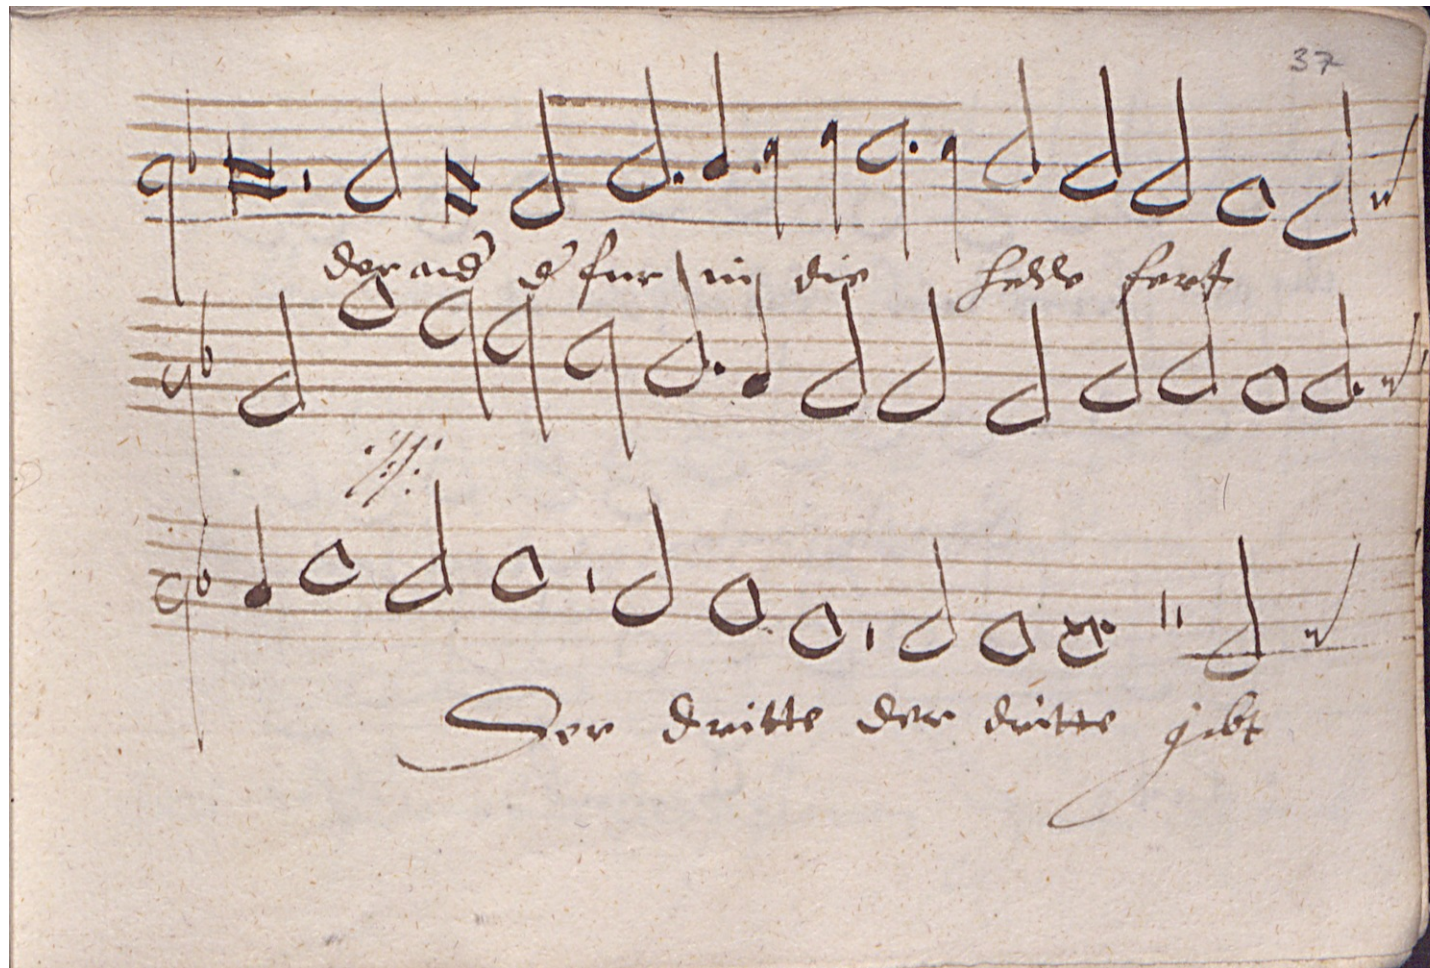 37
der and d' fur in die helle fert
Der dritte der dritte gibt